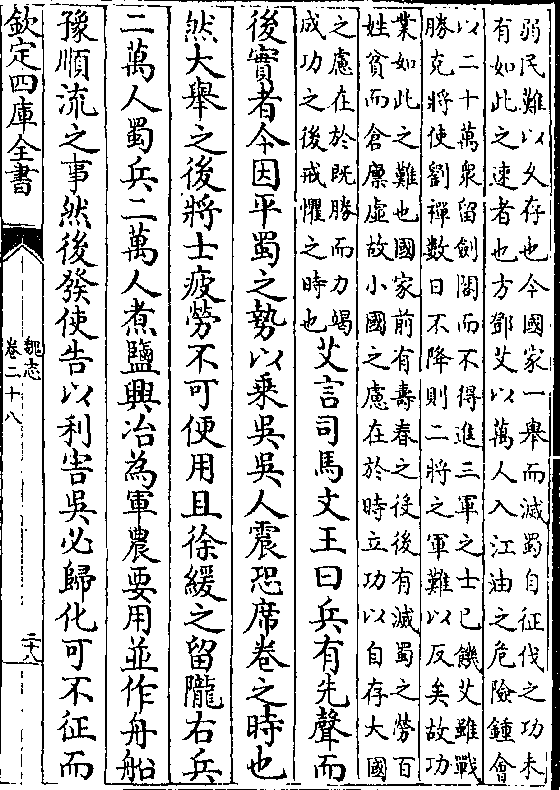 弱民難以久存也今國家一舉而滅蜀自征伐之功未
有如此之速者也方鄧艾以萬人入江油之危險鍾會
以二十萬衆留劍閣而不得進三軍之士已饑艾雖戰
勝克將使劉禪數日不降則二將之軍難以反矣故功
業如此之難也國家前有壽春之役後有滅蜀之勞百
姓貧而倉廩虛故小國之慮在於時立功以自存大國
之慮在於既勝而力竭
成功之後戒懼之時也
艾言司馬文王曰兵有先聲而
後實者今因平蜀之勢以乘吳吳人震恐席卷之時也
然大舉之後將士疲勞不可便用且徐緩之留隴右兵
二萬人蜀兵二萬人煮鹽興冶為軍農要用並作舟船
豫順流之事然後發使告以利害吳必歸化可不征而
欽定四庫全書
魏志
卷二十八
三十八